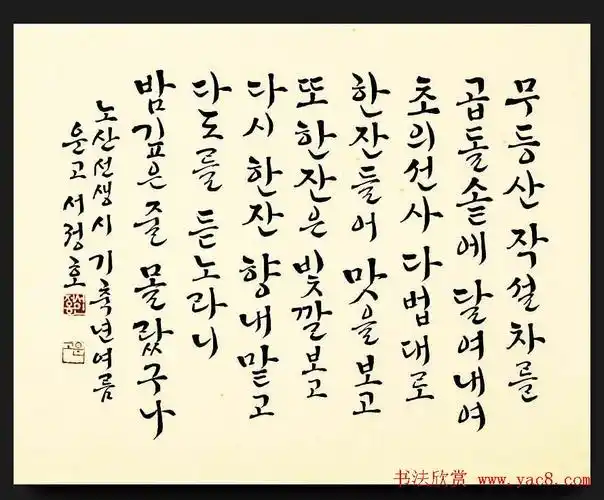 무등산 작설차를
곱돌솥에 달여내여
초의선사 다법대로
한잔들어 맛을 보고
또 한잔은 빛깔 보고
다시 한잔 향내 맡고
다도를 듣노라니
밤깊은 줄 몰랐구나
노산선생시 기축년여름
운고 서정호
书法欣赏 www.yac8.com